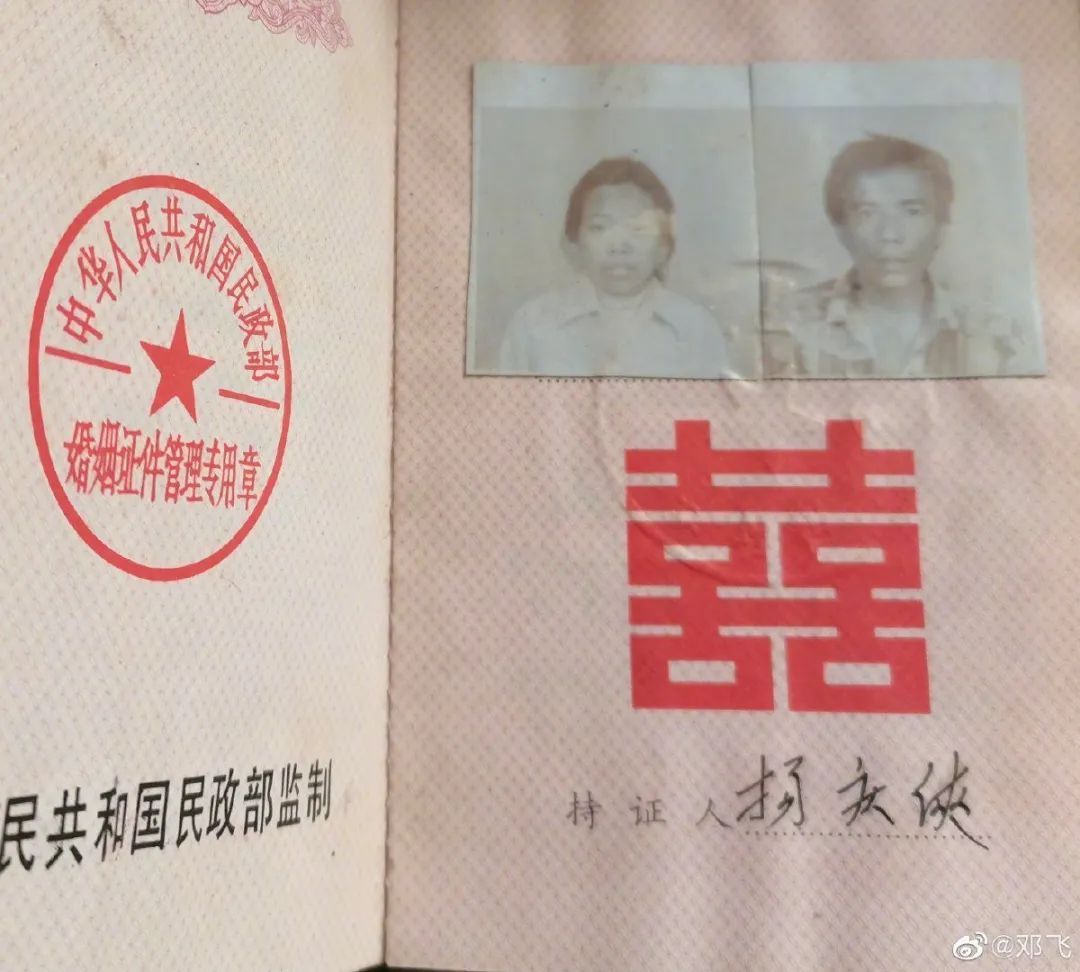 中华人民共和国民政部
婚姻证件管理专用章
民共和国民政部监制
囍
持证人杨庆侠
@邓飞